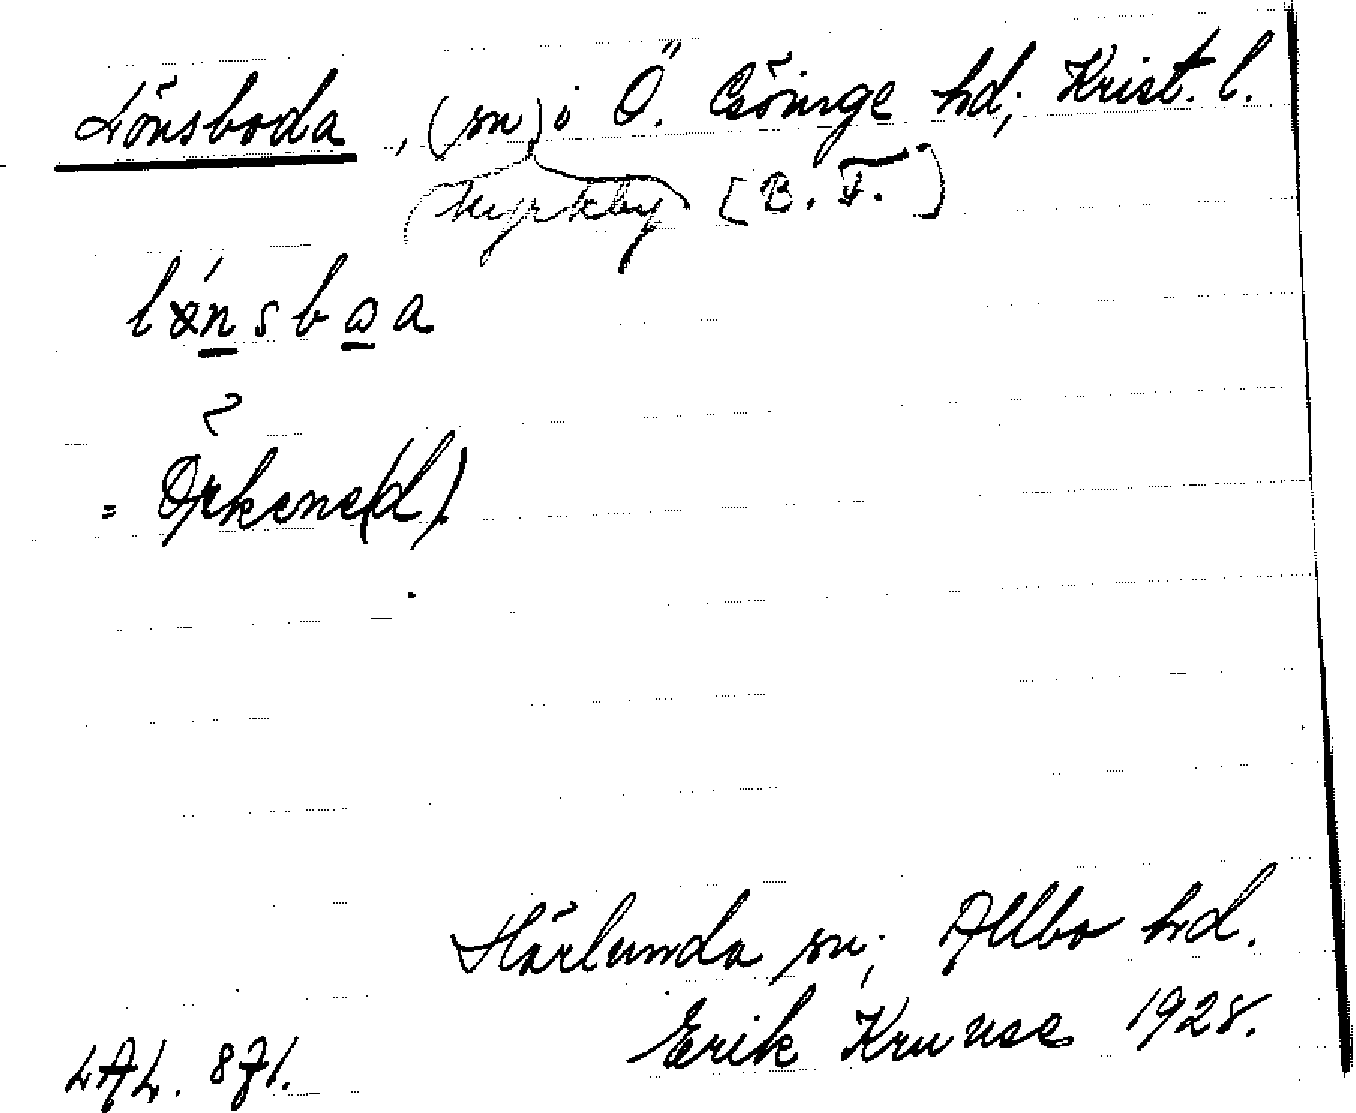 Lönsboda, (sn) i Ö. Göinge hd, Krist. l.
(kyrkby) [B. F.]
lǿnsbɷa
= Örkene(d).
Härlunda sn, Allbo hd.
Erik Kruuse 1928.
LAL. 871.